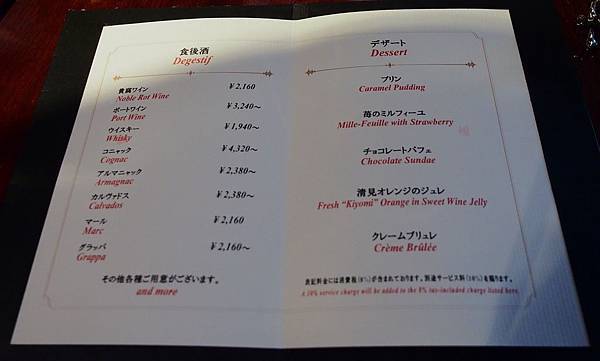 食後酒
Degestif
貴腐ワイン ¥2,160
Noble Rot Wine
ポートワイン ¥3,240～
Port Wine
ウイスキー ¥1,940～
Whisky
コニャック ¥4,320～
Cognac
アルマニャック ¥2,380～
Armagnac
カルヴァドス ¥2,380～
Calvados
マール ¥2,160
Marc
グラッパ ¥2,160～
Grappa
その他各種ご用意がございます。
and more
デザート
Dessert
プリン
Caramel Pudding
苺のミルフィーユ
Mille-Feuille with Strawberry
チョコレートパフェ
Chocolate Sundae
清見オレンジのジュレ
Fresh “Kiyomi” Orange in Sweet Wine Jelly
クレームブリュレ
Crème Brûlée
表記料金には消費税(8%)が含まれております。別途サービス料(10%)を賜ります。
A 10% service charge will be added to the 8% tax-included charge listed here.